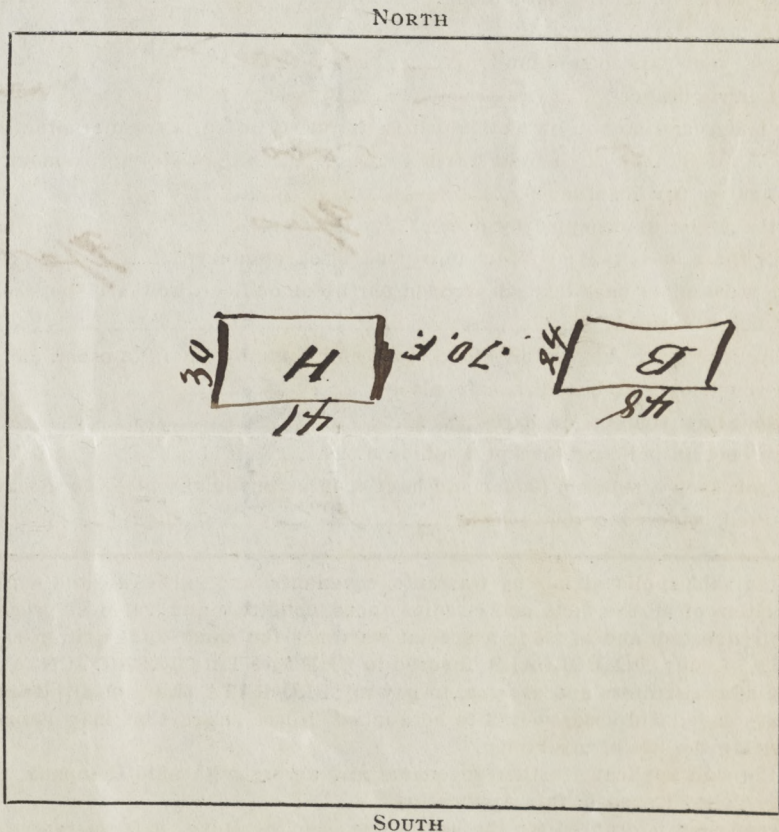 NORTH
30 H 70, F. 24 B
41 48
SOUTH